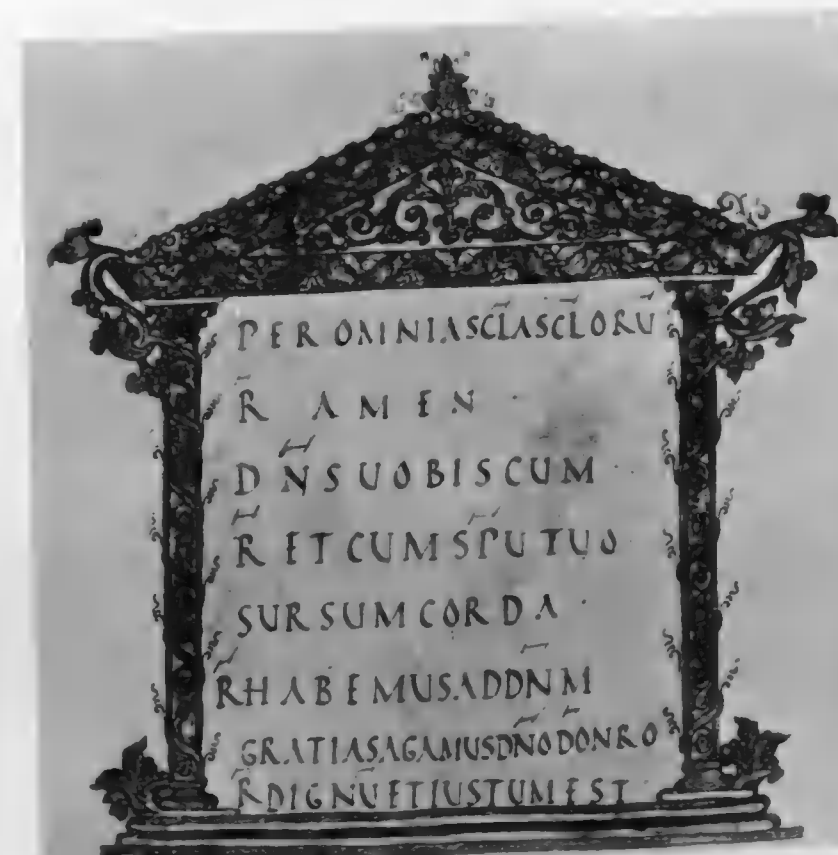 PER OMNIASC̄LASC̄LORŪ
R̄ AMEN
DN̄SUOBISCUM ·
R̄ ETCUMSP̄UTUO
SURSUMCORDA ·
R̄HABEMUSADDN̄M
GRATIASAGAMUSDN̄OD̄ONRO
R̄DIGNŪETIUSTUMEST ·